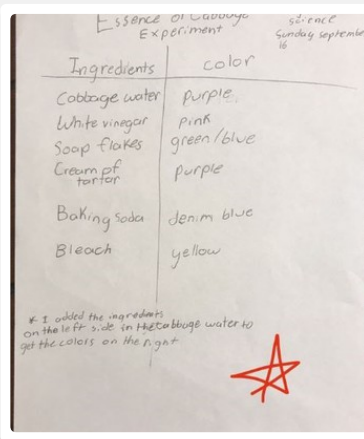 Essence of Cabbage
Experiment
science
Sunday septembe
16
Ingredients color
Cabbage water purple.
White vinegar pink
Soap flakes green/blue
Cream of
tartar purple
Baking soda denim blue
Bleach yellow
* I added the ingredients
on the left side in the cabbage water to
get the colors on the right